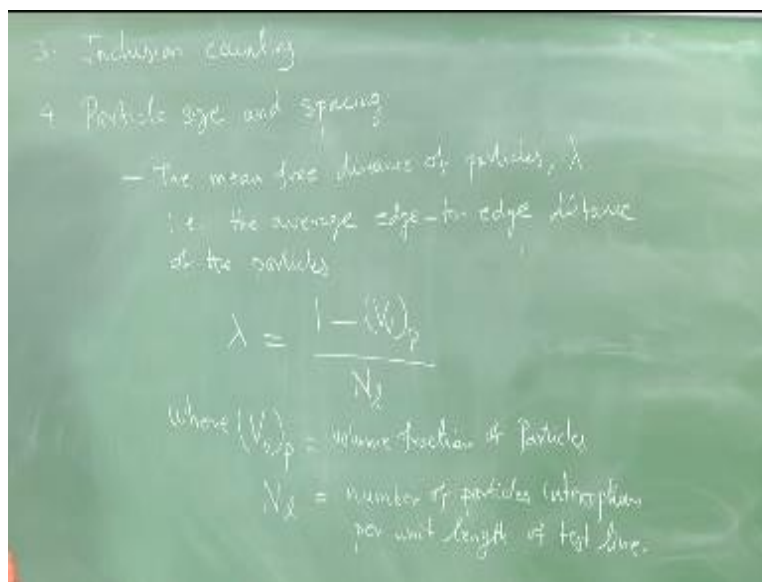 3. Inclusion counting
4. Particle size and spacing
— The mean free distance of particles, λ
i.e. the average edge-to-edge distance
of the particles
λ = 1 − (Vv)p / Nℓ
where (Vv)p = volume fraction of Particles
Nℓ = number of particles interception
per unit length of test line.